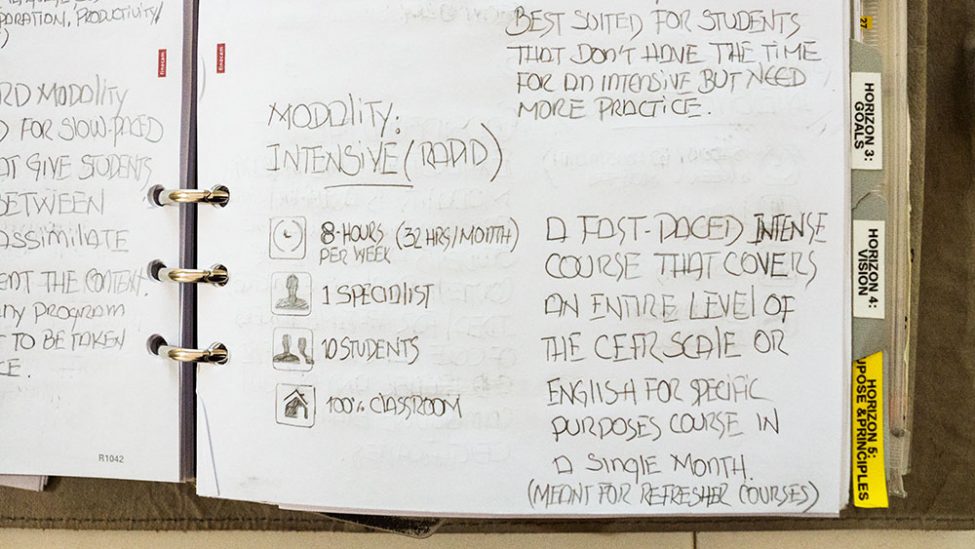 PORATION, PRODUCTIVITY/
RD MODALITY
FOR SLOW-PACED
AT GIVE STUDENTS
BETWEEN
ASSIMILATE
ENT THE CONTENT.
NY PROGRAM
E TO BE TAKEN
CE.
R1042
Enecam
Enecam
BEST SUITED FOR STUDENTS
THAT DON'T HAVE THE TIME
FOR AN INTENSIVE BUT NEED
MORE PRACTICE.
MODALITY:
INTENSIVE (RAPID)
8-HOURS (32 HRS/MONTH)
PER WEEK
1 SPECIALIST
10 STUDENTS
100% CLASSROOM
A FAST-PACED INTENSE
COURSE THAT COVERS
AN ENTIRE LEVEL OF
THE CEFR SCALE OR
ENGLISH FOR SPECIFIC
PURPOSES COURSE IN
A SINGLE MONTH.
(MEANT FOR REFRESHER COURSES)
27
HORIZON 3:
GOALS
HORIZON 4:
VISION
HORIZON 5:
UPOSE & PRINCIPLES